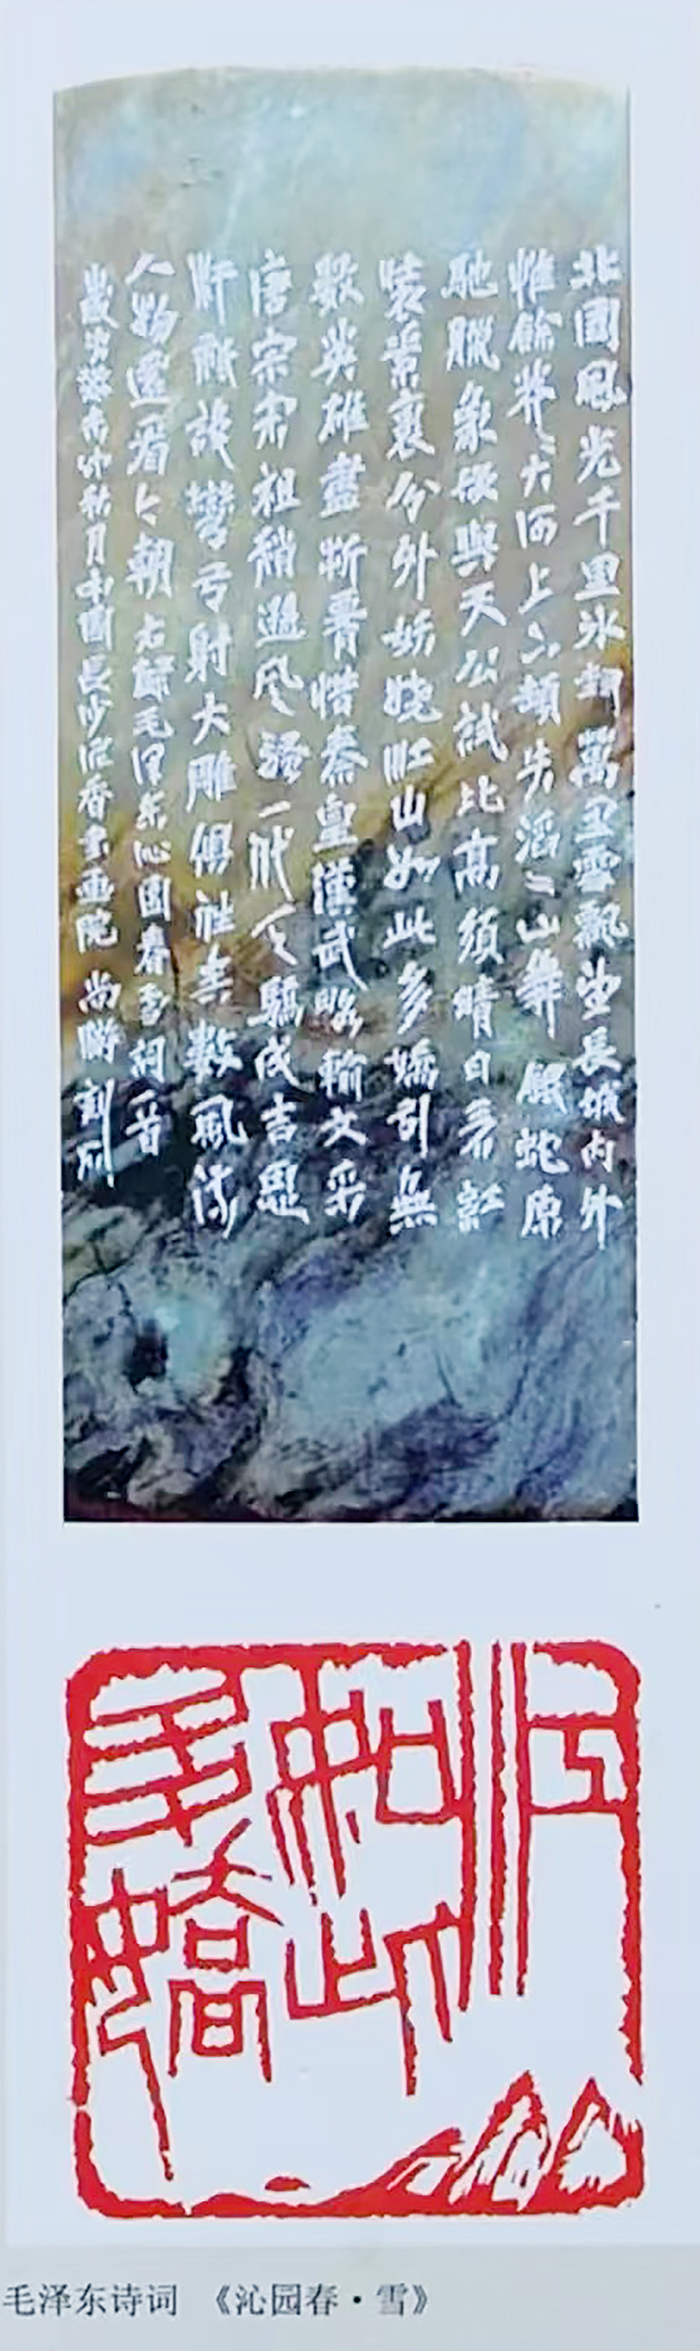 北國風光千里冰封萬里雪飄望長城內外
惟餘莽々大河上下頓失滔々山舞銀蛇原
馳臘象欲與天公試比高須晴日看紅
裝素裹分外妖嬈江山如此多嬌引無
數英雄盡折腰惜秦皇漢武略輸文采
唐宗宋祖稍遜風騷一代天驕成吉思
汗祇識彎弓射大雕俱往矣數風流
人物還看今朝右錄毛澤東沁園春雪詞一首
歲次 秋月 書画院 尚 刻
江山如此多嬌
毛泽东诗词 《沁园春·雪》